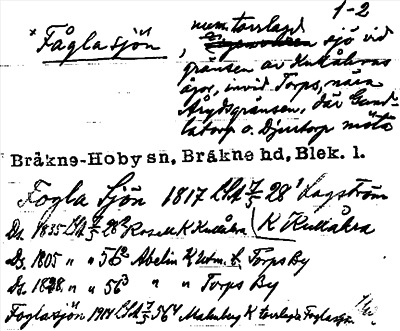 1-2
× Fåglasjön, num. torrlagd
sjö vid
gränsen av Kullåkras
ägor, invid Torps, nära
Årydsgränsen, där Gund-
latorp o. Djurtorp möta
Bräkne-Hoby sn, Bräkne hd, Blek. l.
Fogla Sjön 1817 28¹ Lagström
Ds. 1835 28² Rosell K Kullåkra (K Kullåkra
Ds. 1805 " " 56² Abelin K Torps By
Ds. 1828 " " 56³ " " Torps By
Foglasjön 1914 56⁴ Malmberg K torrlagda Foglasjön